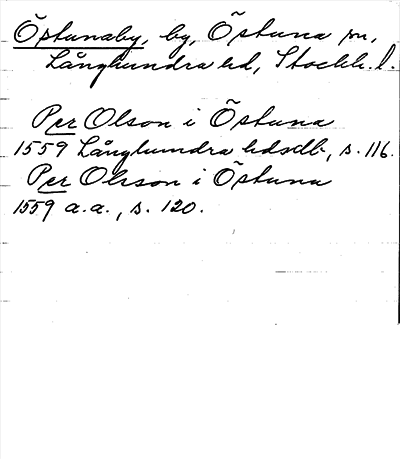 Östunaby, by, Östuna sn,
Långhundra hd, Stockh. l.
Per Olson i Östuna
1559 Långhundra hdsdb, s. 116.
Per Olsson i Östuna
1559 a.a., s. 120.